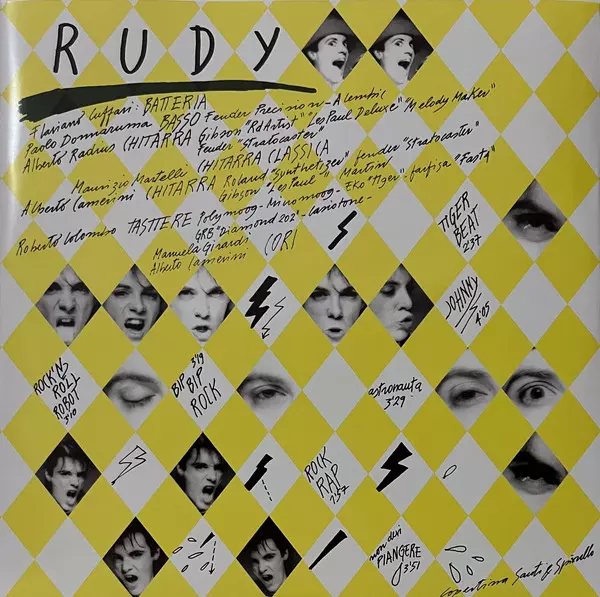 RUDY
Flaviano Cuffari: BATTERIA
Paolo Donnaruma BASSO Fender Precision - Alembic
Alberto Radius CHITARRA Gibson "Rd Artist" "Les Paul Deluxe" "Melody Maker"
Fender "Stratocaster"
Maurizio Martelli CHITARRA CLASSICA
Alberto Camerini CHITARRA Roland "Synthetizer" - fender "Stratocaster"
Gibson "Les Paul" - Martin
Roberto Colombo TASTIERE Polymoog - Minimoog - Eko "Tiger" - farfisa "Fasta"
GRB "Diamond 202" - Casiotone -
Manuela Girardi
Alberto Camerini CORI
TIGER BEAT 2'37
JOHNNY 4'05
ROCK'N ROLL ROBOT 3'10
BIP BIP ROCK 3'19
astronauta 3'29
ROCK RAP 1'57
non devi PIANGERE 3'51
copertina Santi & Spinello